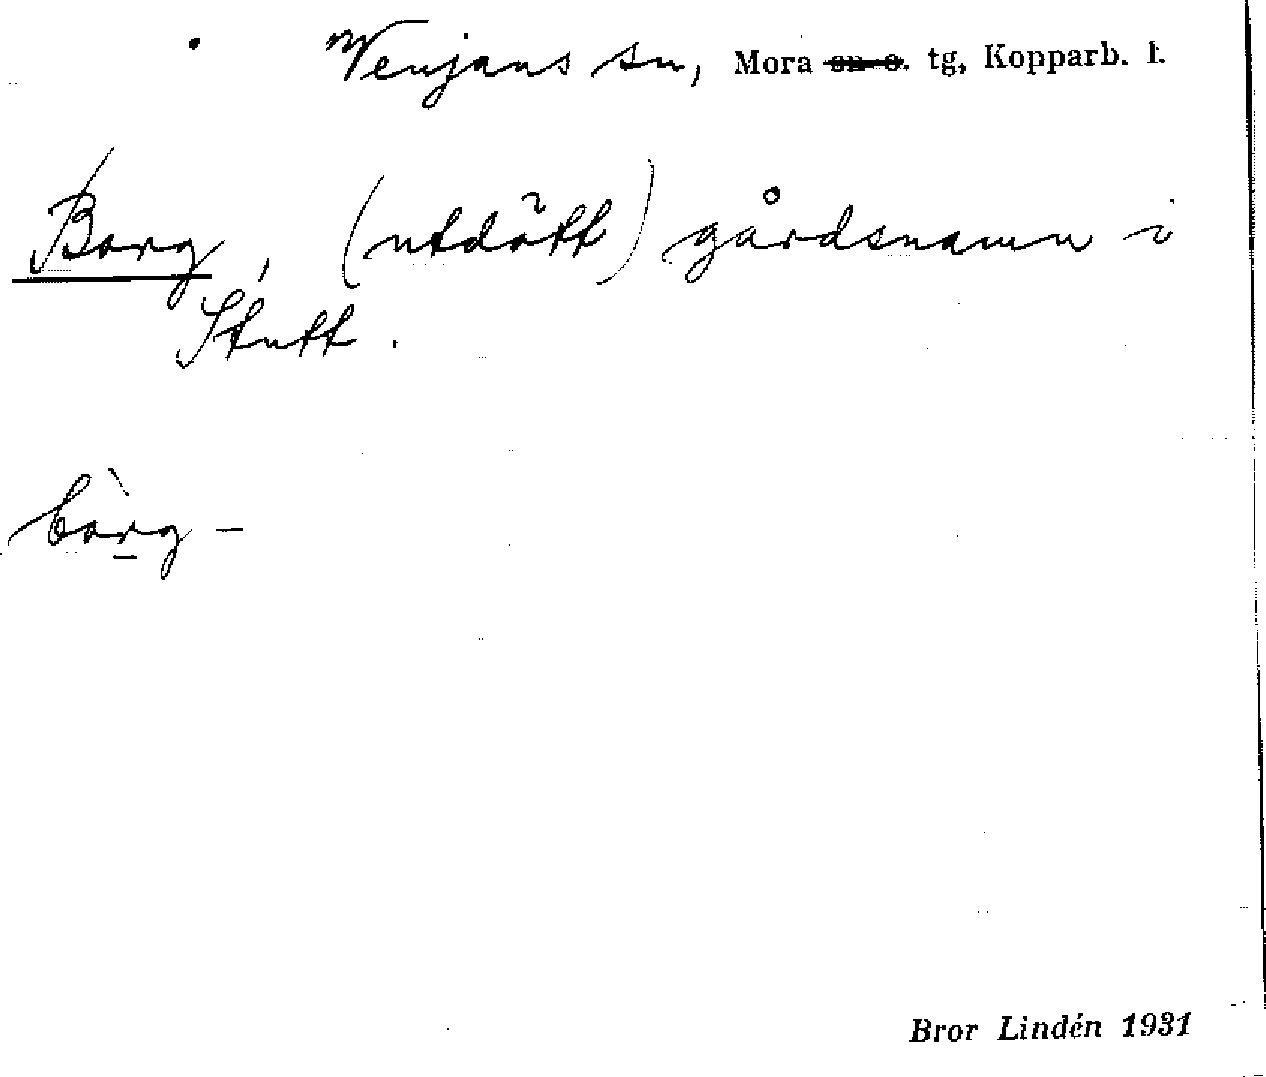 Venjans sn, Mora sn o. tg, Kopparb. l.
Borg, (utdött) gårdsnamn i
Stutt.
bòrg -
Bror Lindén 1931